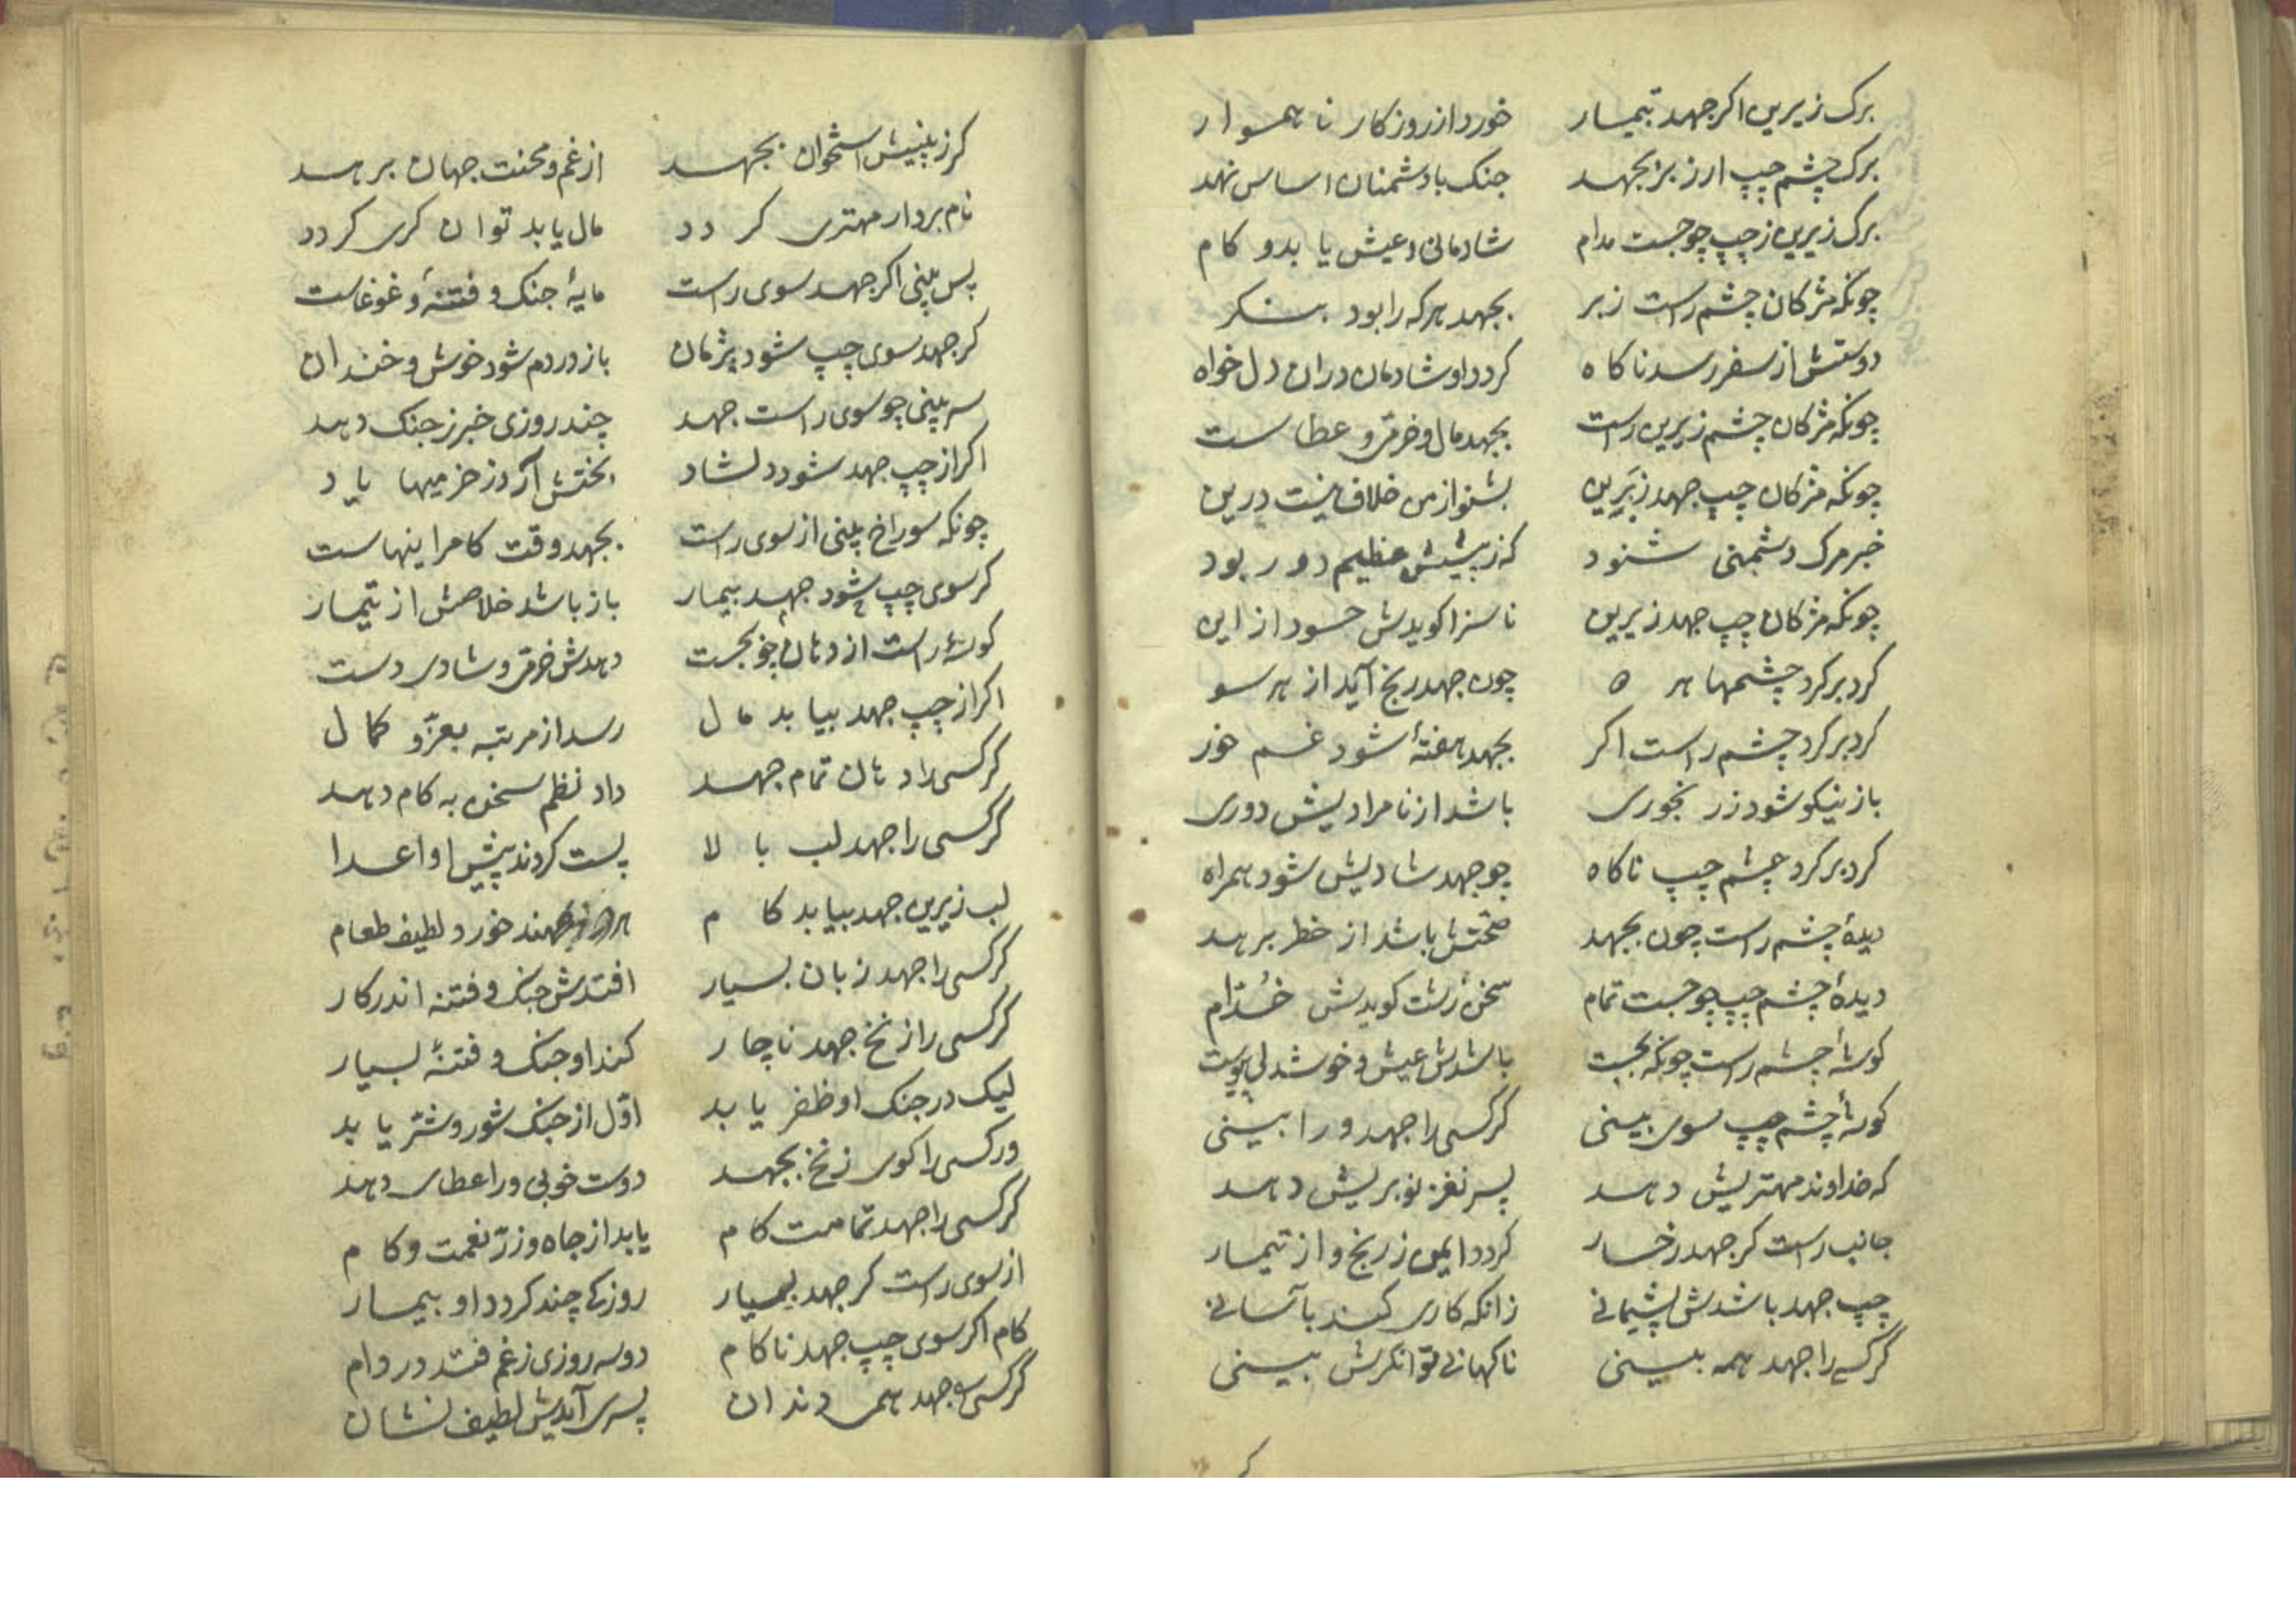 برک زیرین اکر جهد تیمار خورد از روزکار نا هموار
برک چشم چپ ار ز بر بجهد جنک با دشمنان اساس نهد
برک زیرین ز چپ چو جست مدام شادمانی و عیش یا بدو کام
چونکه مژکان چشم راست زبر بجهد هرکه را بود بنکر
دوستش از سفر رسد ناکاه کردد او شادمان دران دل خواه
چونکه مژکان چشم زیرین راست بجهد مال و خرمی و عطاست
چونکه مژکان چپ جهد زبرین بشنو از من خلاف نیست درین
خبر مرک دشمنی شنود که ز پیشش عظیم دور بود
چونکه مژکان چپ جهد زیرین نا سزا کویدش حسود از این
کرد برکرد چشمها هر ه چون جهد رنج آید از هر سو
کرد برکرد چشم راست اکر بجهد هفتهٔ شود غم خور
باز نیکو شود ز رنجوری باشد از نامرادیش دوری
کرد برکرد چشم چپ ناکاه چو جهد شادیش شود همراه
دیدهٔ چشم راست چون بجهد صحتش باشد از خطر برهد
دیدهٔ چشم چپ چو جست تمام سخن زشت کویدش خدام
کوشهٔ چشم راست چونکه بجست باشدش عیش و خوشدلی پیوست
کوشهٔ چشم چپ سوی بینی کر کسی را جهد ورا بینی
که خداوند مهتریش دهد پسر نغز نو بریش دهد
جانب راست کر جهد رخسار کردد ایمن ز رنج و از تیمار
چپ جهد باشدش پشیمانی زانکه کاری کند بآسانی
کر کسی را جهد همه بینی ناکهانی توانکرش بینی
کر ز بینیش استخوان بجهد از غم و محنت جهان برهد
نام بردار مهتری کردد مال یابد توان کری کردد
پس بینی اکر جهد سوی راست مایهٔ جنک و فتنهٔ و غوغاست
کر جهد سوی چپ شود پژمان باز در دم شود خوش و خندان
سر بینی چو سوی راست جهد چند روزی خبر ز جنک دهد
اکر از چپ جهد شود دلشاد بختش آرد ز خرمیها یاد
چونکه سوراخ بینی از سوی راست بجهد وقت کامرانیهاست
کر سوی چپ شود جهد بیمار باز باشد خلاصش از تیمار
کوشهٔ راست از دهان چو بجست دهدش خرمی و شادی دست
اکر از چپ جهد بیابد مال رسد از مرتبه بعز و کمال
کر کسی را دهان تمام جهد داد نظم سخن به کام دهد
کر کسی را جهد لب بالا پست کردند پیش او اعدا
لب زیرین جهد بیابد کام خورد لطیف طعام
کر کسی را جهد زبان بسیار افتدش جنک و فتنه اندر کار
کر کسی را زنخ جهد ناچار کند او جنک و فتنهٔ بسیار
لیک در جنک او ظفر یابد اول از جنک شور و شر یابد
ور کسی را کوی زنخ بجهد دوست خوبی ورا عطای دهد
کر کسی را جهد تمامت کام یابد از جاه و زر نعمت و کام
از سوی راست کر جهد بسیار روزکی چند کردد او بیمار
کام اکر سوی چپ جهد ناکام دو سه روزی ز غم فتد در دام
کر کسی جهد همی دندان پسری آیدش لطیف نشان